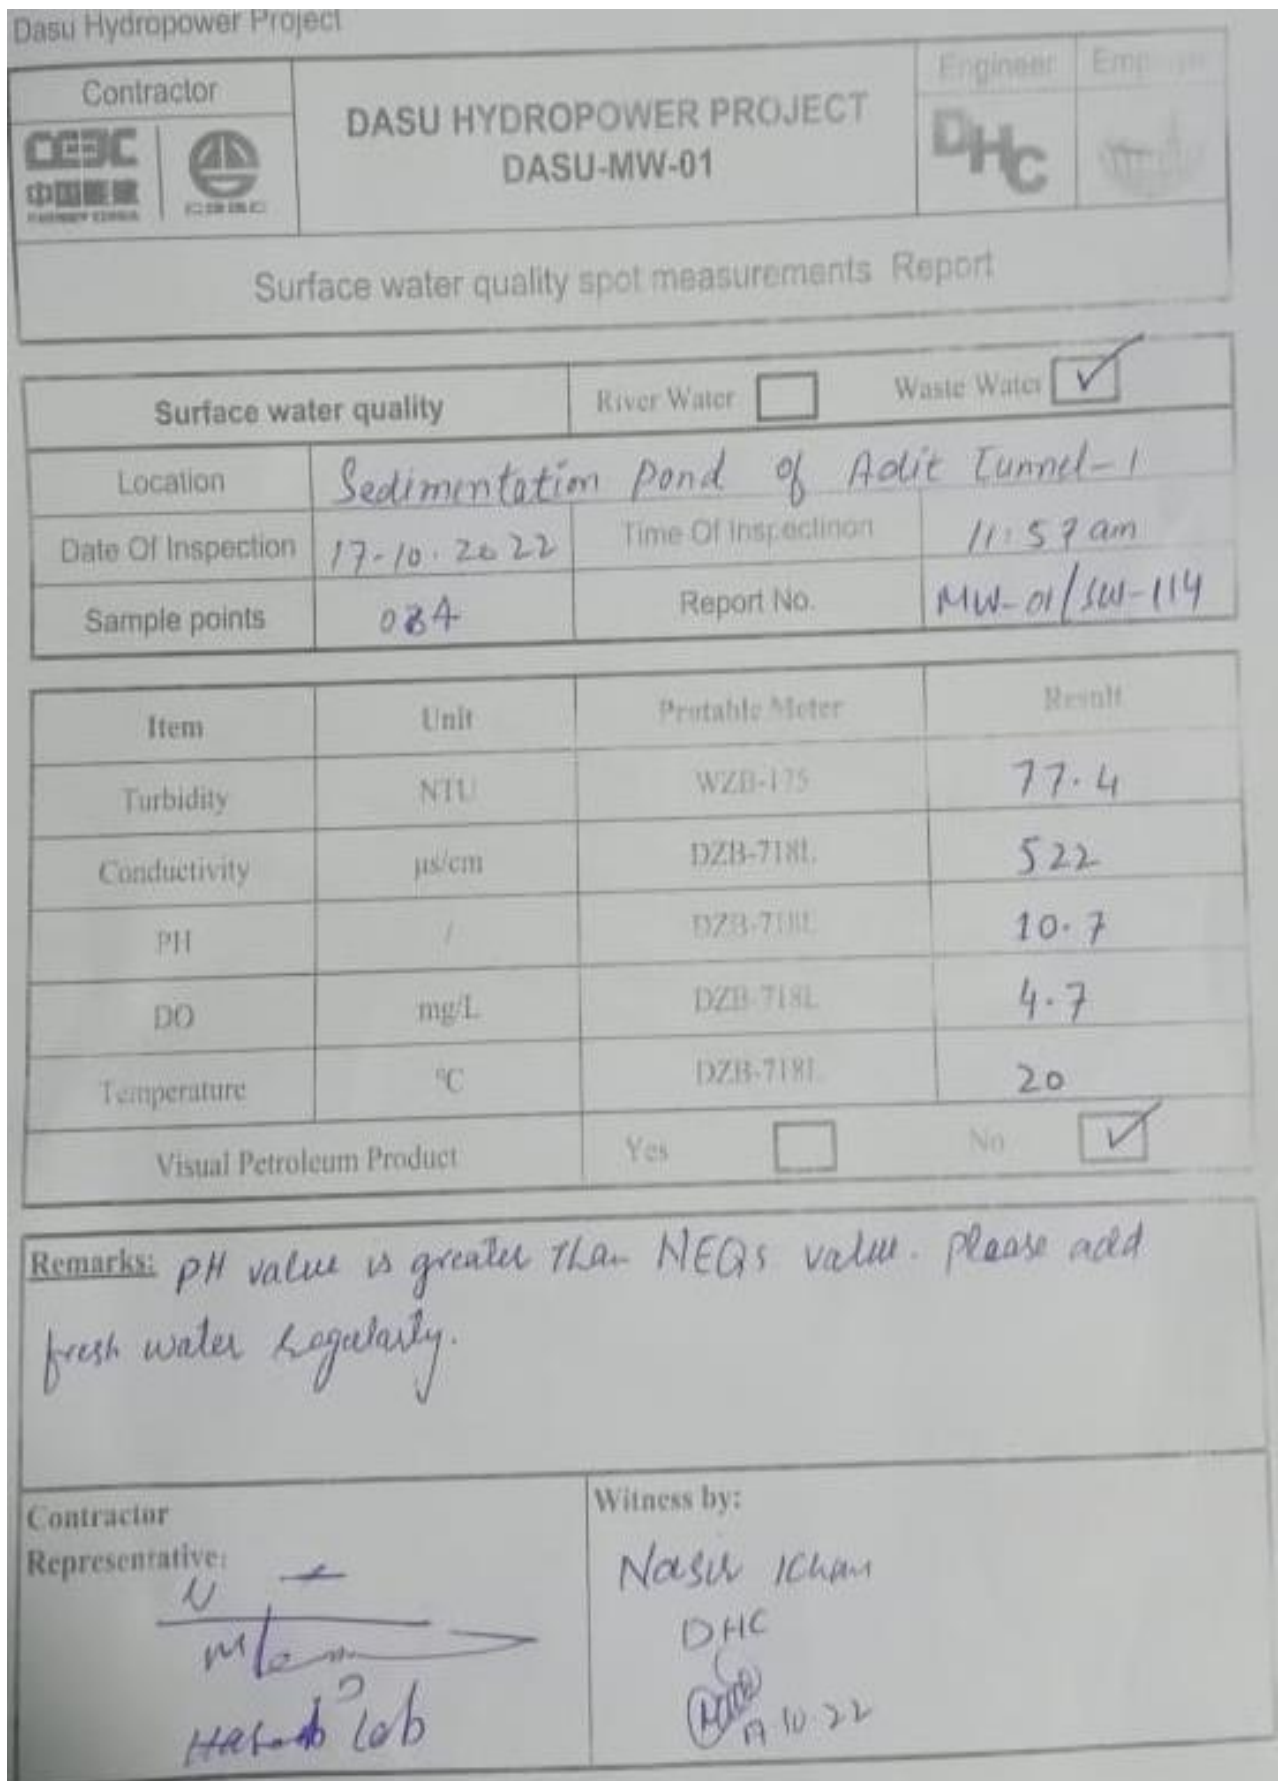 Dasu Hydropower Project
Contractor
Engineer
DASU HYDROPOWER PROJECT
DASU-MW-01
中国能建
DHC
Surface water quality spot measurements Report
Surface water quality River Water Waste Water ✓
Location Sedimentation pond of Adit Tunnel-1
Date Of Inspection 17-10.2022 Time Of Inspectinon 11:57 am
Sample points Report No. MW-01/SW-114
Item Unit Protable Meter Result
Turbidity NTU WZB-175 77.4
Conductivity μs/cm DZB-718L 522
PH / DZB-718L 10.7
DO mg/L DZB-718L 4.7
Temperature °C DZB-718L 20
Visual Petroleum Product Yes No ✓
Remarks: pH value is greater than NEQs value. please add
fresh water regularly.
Contractor
Representative:
Witness by:
Nasir Khan
DHC
lab
10-22